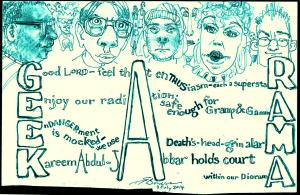 GEEK A RAMA
Good LORD - feel that enTHUSiasm - each a supersta
Enjoy our radiation: safe enough for Gramp & Gamm
EnDANGERMENT is mocked - we use
Death's-head-grin alar
Kareem Abdul-JAbbar holds court
within our Diorama